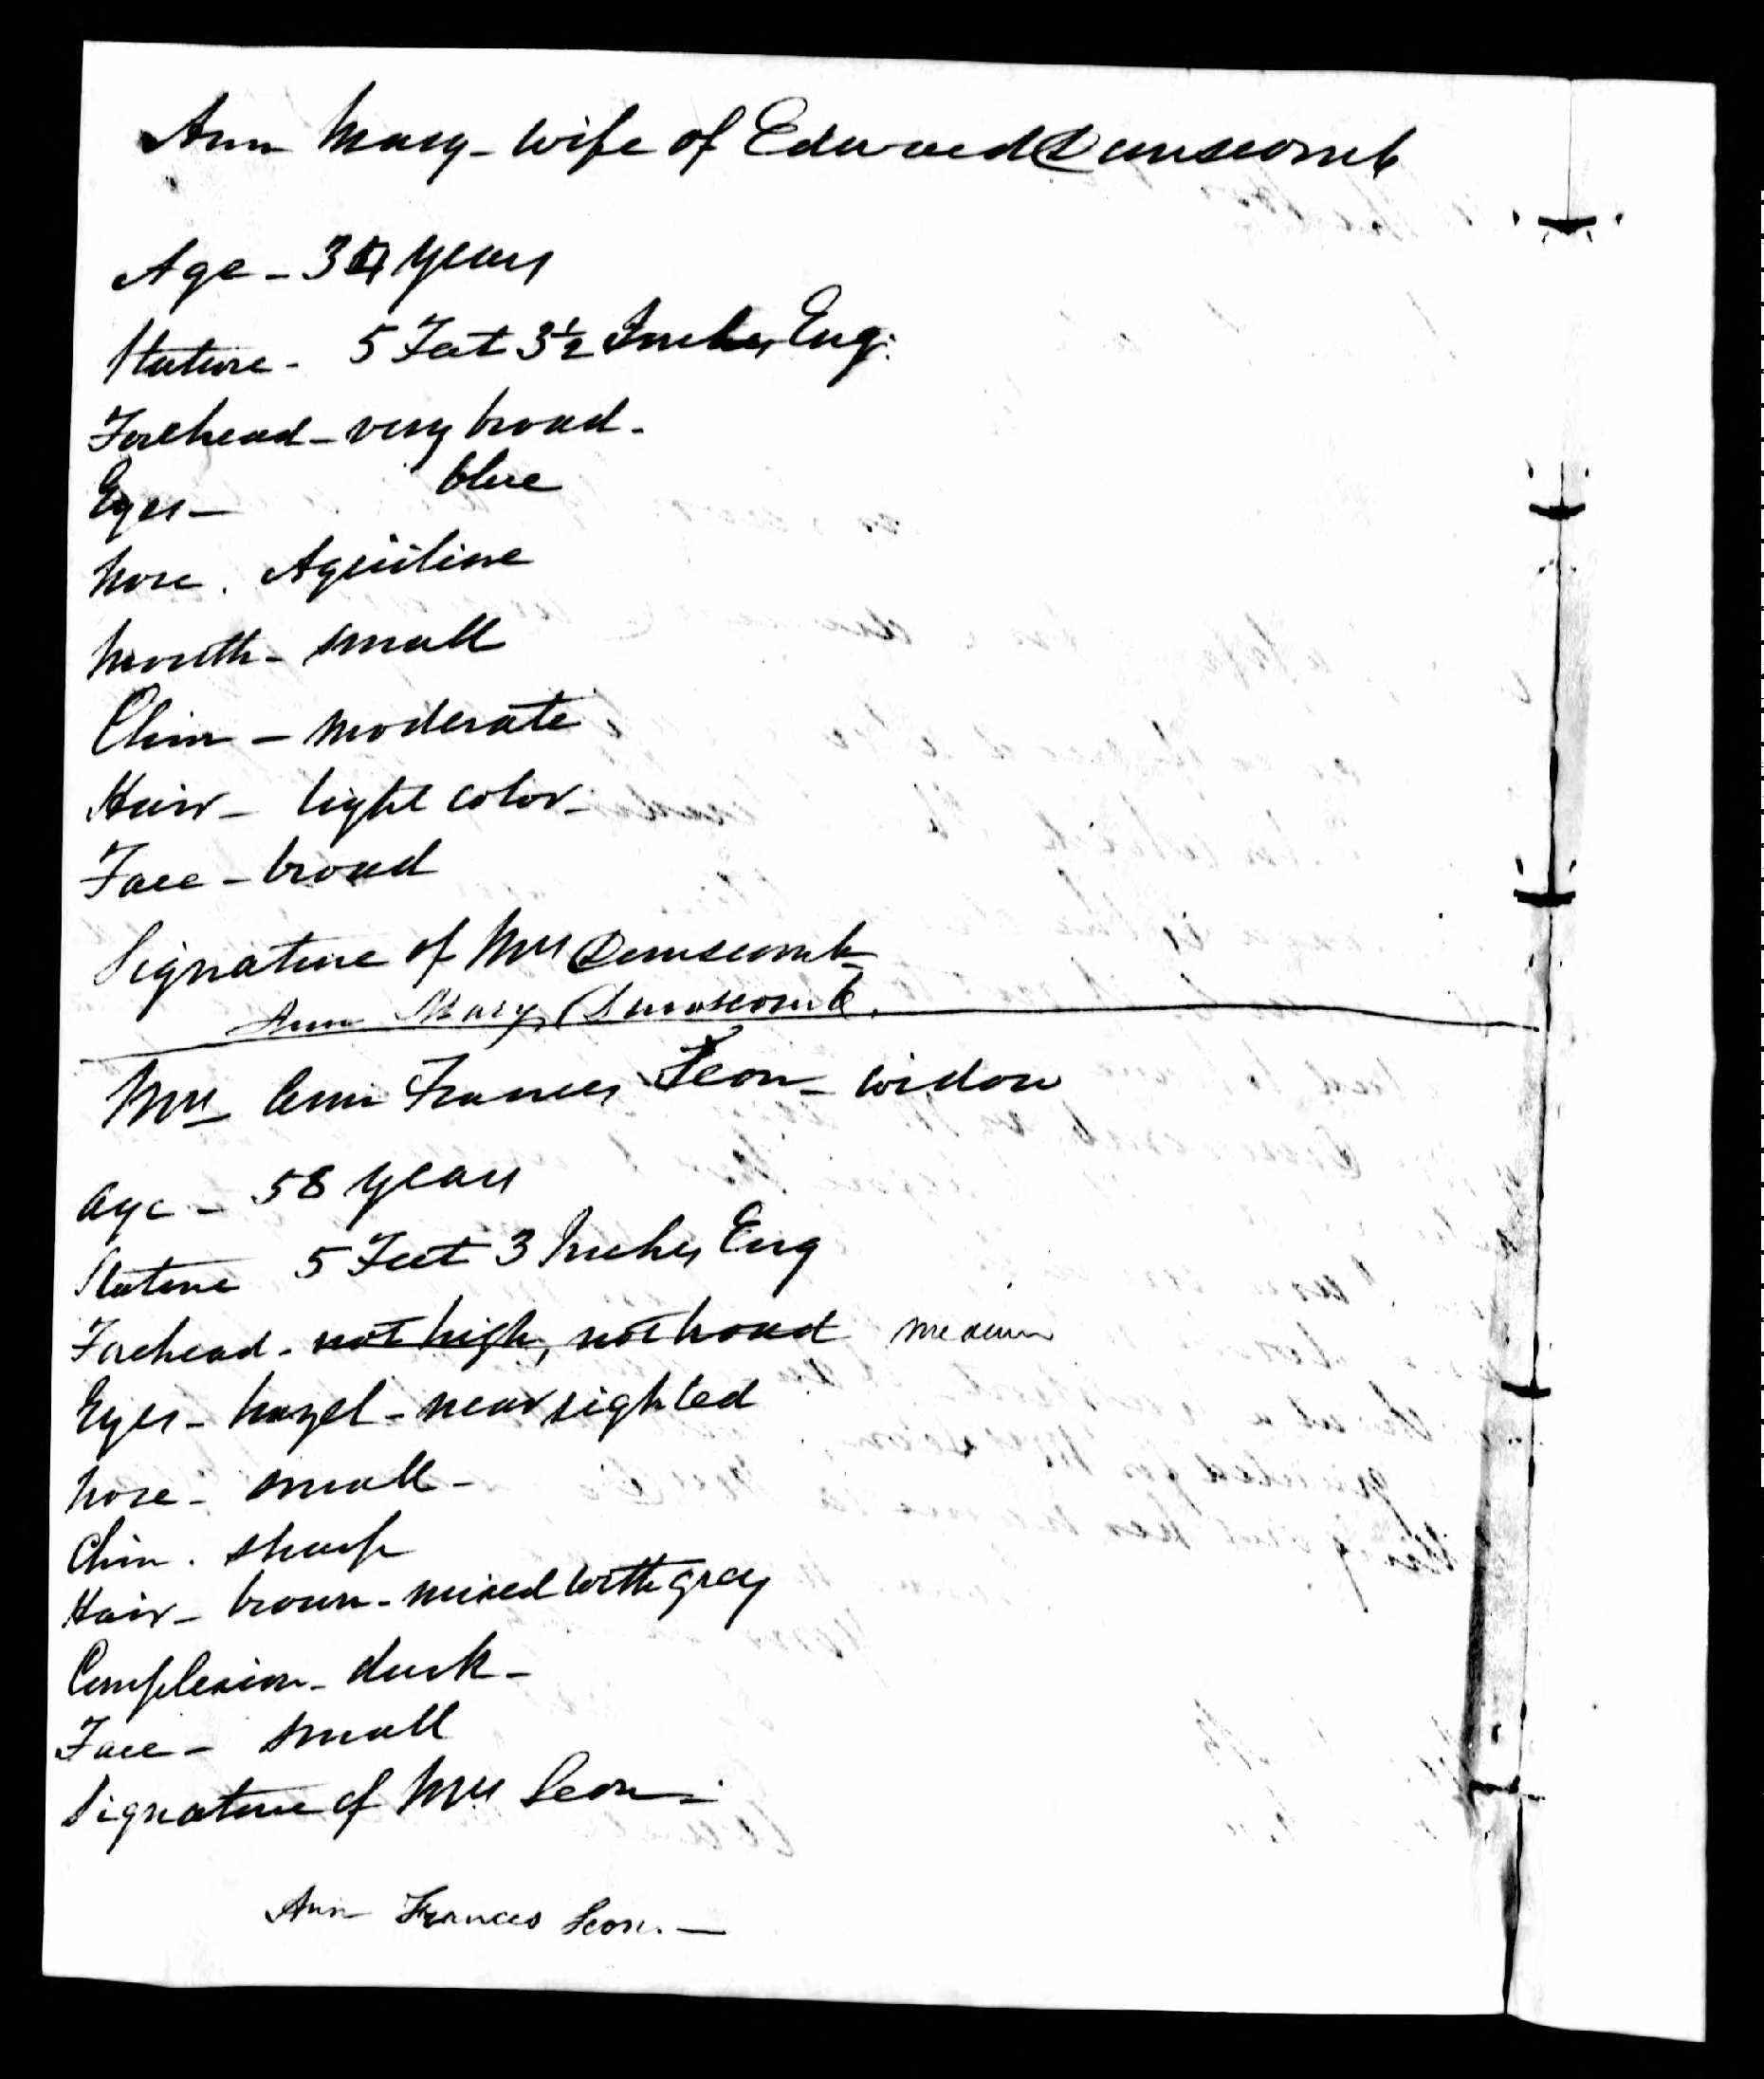 Ann Mary - wife of Edward Dunscomb
Age - 34 years
Stature - 5 Feet 3½ Inches Eng:
Forehead - very broad -
Eyes - blue
Nose . Aquiline
Mouth - small
Chin - moderate
Hair - light color -
Face - broad
Signature of Mrs Dunscomb
Ann Mary Dunscomb.
Mrs Ann Frances Seon - widow
Age - 58 years
Stature 5 Feet 3 Inches Eng
Forehead - not high, not broad medium
Eyes - hazel - near sighted
Nose - small -
Chin . sharp
Hair - brown - mixed with grey
Complexion - dark -
Face - small
Signature of Mrs Seon -
Ann Frances Seon. -